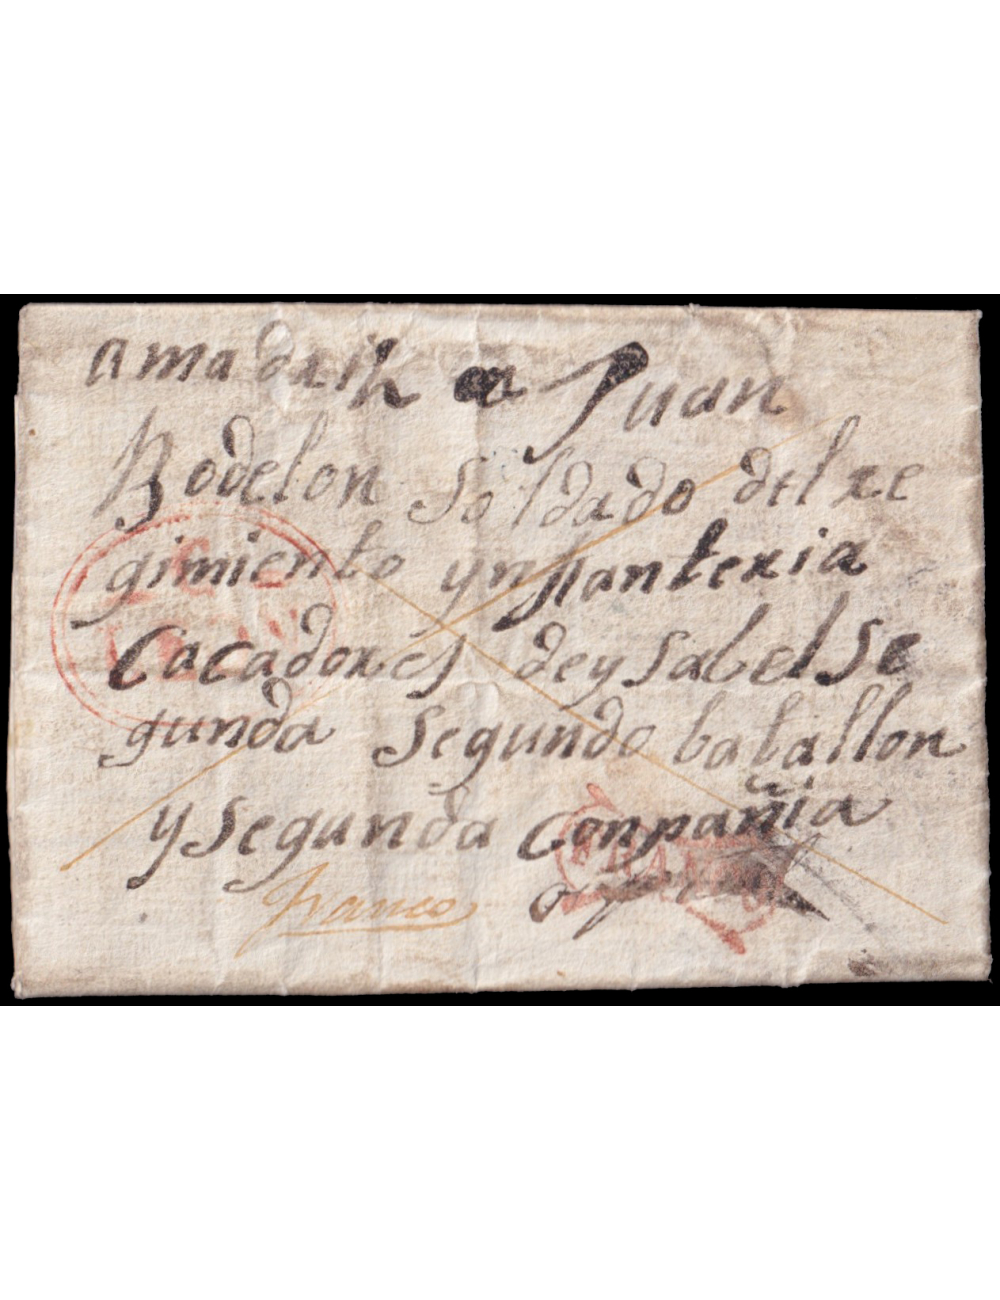 amadrih a Juan
Rodelon Soldado del re
gimiento ynfanteria
Cacadores de ysabel se
gunda segundo batallon
y segunda conpañia
franco
FRANCO